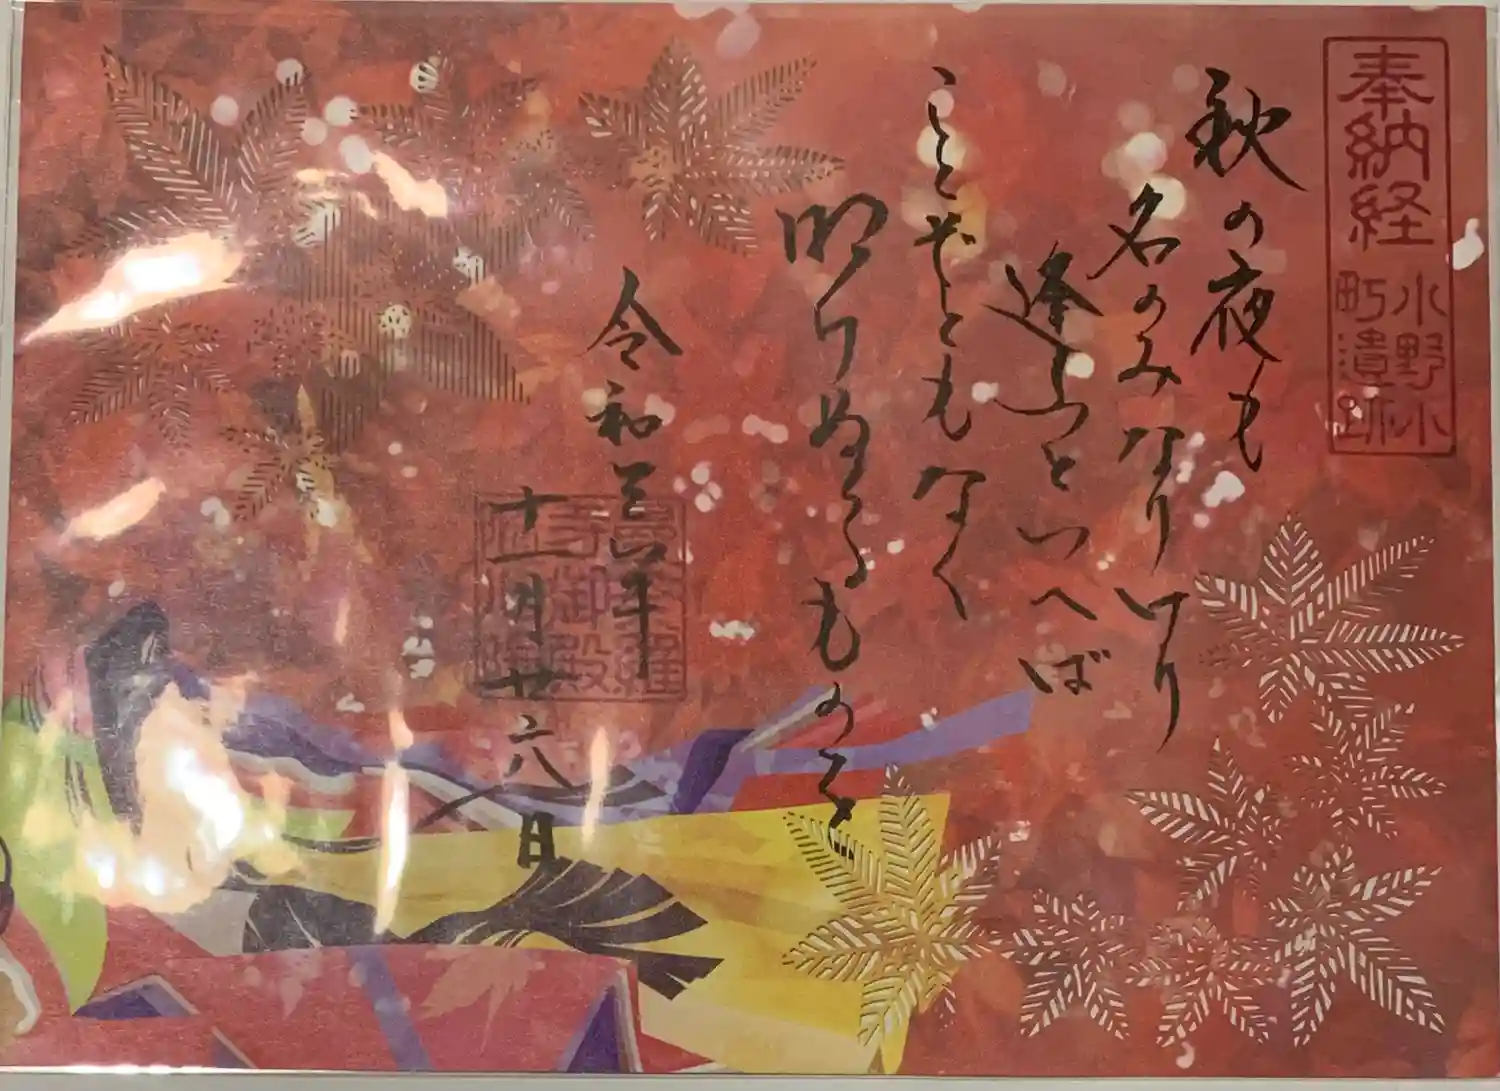 奉納経
小野小
町遺跡
秋の夜も
名のみなりけり
逢ふといへば
ことぞともなく
明けぬるものを
令和三年
十一月廿六日
曼荼羅
寺御殿